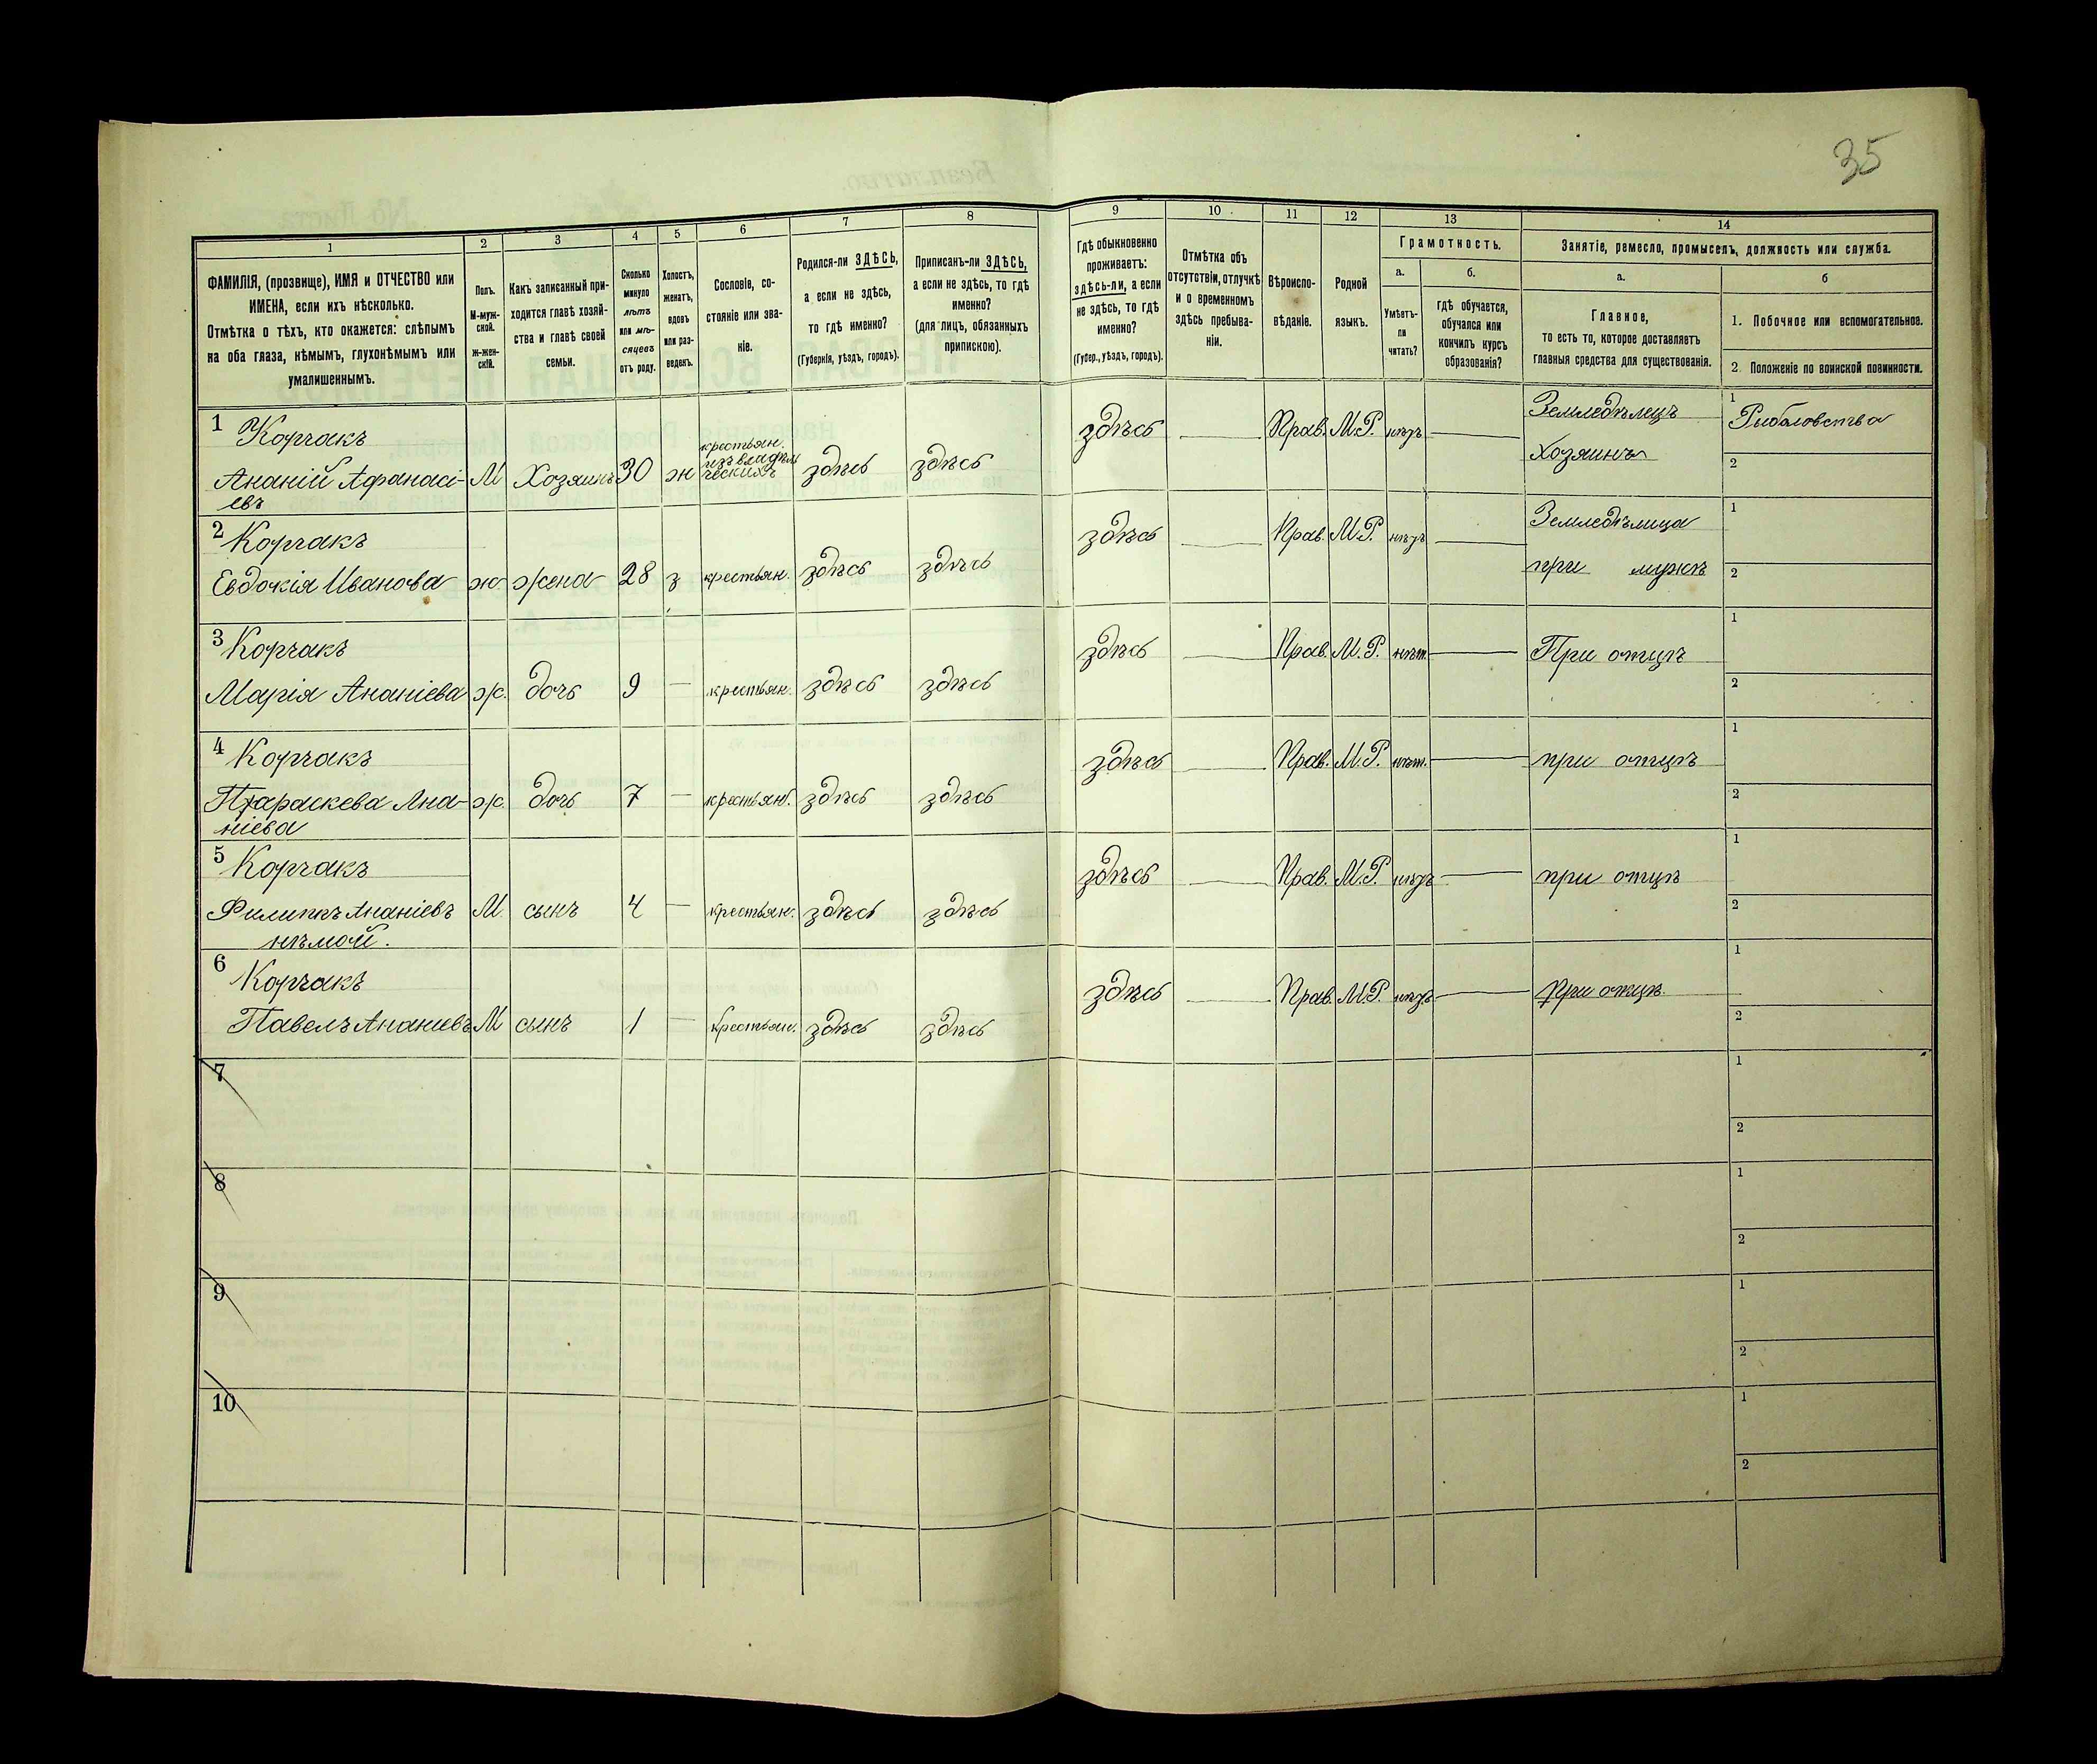 35
1
2
3
4
5
6
7
8
9
10
11
12
13
14
ФАМИЛІЯ, (прозвище), ИМЯ и ОТЧЕСТВО или
ИМЕНА, если ихъ нѣсколько.
Отмѣтка о тѣхъ, кто окажется: слѣпымъ
на оба глаза, нѣмымъ, глухонѣмымъ или
умалишеннымъ.
Полъ.
М-муж-
ской.
Ж-жен-
скій.
Какъ записанный при-
ходится главѣ хозяй-
ства и главѣ своей
семьи.
Сколько
минуло
лѣтъ
или мѣ-
сяцевъ
отъ роду.
Холостъ,
женатъ,
вдовъ
или раз-
веденъ.
Сословіе, со-
стояніе или зва-
ніе.
Родился-ли ЗДѢСЬ,
а если не здѣсь,
то гдѣ именно?
(Губернія, уѣздъ, городъ).
Приписанъ-ли ЗДѢСЬ,
а если не здѣсь, то гдѣ
именно?
(для лицъ, обязанныхъ
припискою).
Гдѣ обыкновенно
проживаетъ:
здѣсь-ли, а если
не здѣсь, то гдѣ
именно?
(Губер., уѣздъ, городъ).
Отмѣтка объ
отсутствіи, отлучкѣ
и о временномъ
здѣсь пребыва-
ніи.
Вѣроиспо-
вѣданіе.
Родной
языкъ.
Грамотность.
а.
Умѣетъ-
ли
читать?
б.
гдѣ обучается,
обучался или
кончилъ курсъ
образованія?
Занятіе, ремесло, промыселъ, должность или служба.
а.
Главное,
то есть то, которое доставляетъ
главныя средства для существованія.
б
1. Побочное или вспомогательное.
2. Положеніе по воинской повинности.
1 Корчакъ
Ананій Афанасі-
евъ
М Хозяинъ 30 ж
крестьян.
изъ владѣль
ческихъ
здѣсь здѣсь здѣсь — Прав. М.Р. нѣтъ —
Земледѣлецъ
Хозяинъ
1 Рыболовства
2
2 Корчакъ
Евдокія Иванова ж. жена 28 з крестьян. здѣсь здѣсь здѣсь — Прав. М.Р. нѣтъ —
Земледѣлица
при мужѣ
1
2
3 Корчакъ
Марія Ананіева ж. дочь 9 — крестьян. здѣсь здѣсь здѣсь — Прав. М.Р. нѣт. — При отцѣ
1
2
4 Корчакъ
Параскева Ана-
ніева
ж. дочь 7 — крестьян. здѣсь здѣсь здѣсь — Прав. М.Р. нѣт. — при отцѣ
1
2
5 Корчакъ
Филиппъ Ананіевъ
нѣмой.
М. сынъ 4 — крестьян. здѣсь здѣсь здѣсь — Прав. М.Р. нѣтъ — при отцѣ
1
2
6 Корчакъ
Павелъ Ананіевъ М сынъ 1 — крестьян. здѣсь здѣсь здѣсь — Прав. М.Р. нѣтъ — При отцѣ.
1
2
7
1
2
8
1
2
9
1
2
10
1
2